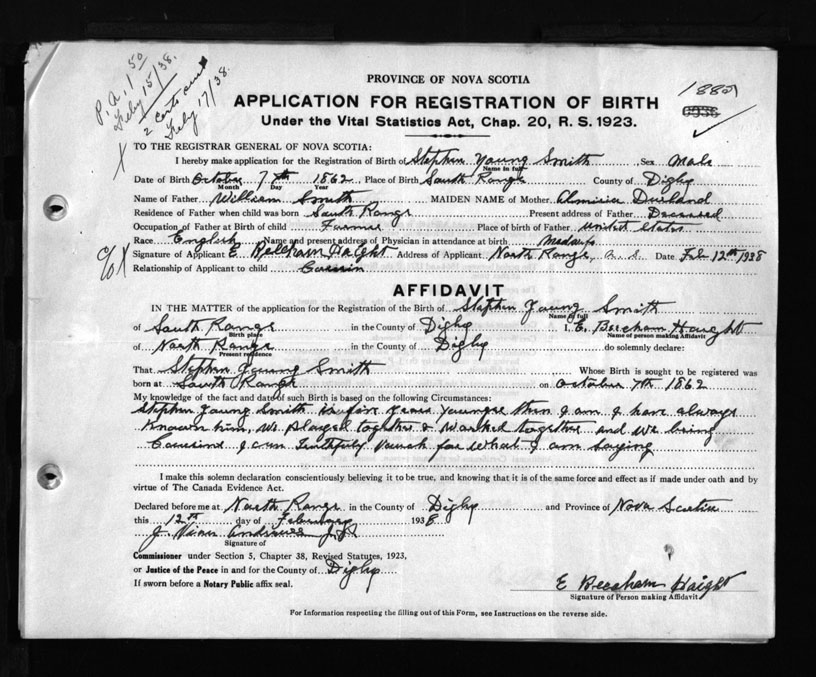 P.A. 1 50
Feby 15/38.
2 certs
Feby 17/38.
PROVINCE OF NOVA SCOTIA
APPLICATION FOR REGISTRATION OF BIRTH
Under the Vital Statistics Act, Chap. 20, R. S. 1923.
TO THE REGISTRAR GENERAL OF NOVA SCOTIA:
I hereby make application for the Registration of Birth of Stephen Young Smith Sex Male
Name in full
Date of Birth October 7th 1862 Place of Birth South Range County of Digby
Month Day Year
Name of Father William Smith MAIDEN NAME of Mother Almira Durland
Residence of Father when child was born South Range Present address of Father Deceased
Occupation of Father at Birth of child Farmer Place of birth of Father United States
Race English Name and present address of Physician in attendance at birth
Signature of Applicant E Beecham Haight Address of Applicant North Range, N. S. Date Feb 12th 1938
Relationship of Applicant to child Cousin
AFFIDAVIT
IN THE MATTER of the application for the Registration of the Birth of Stephen Young Smith
Name in full
of South Range in the County of Digby I, E. Beecham Haight
Birth place Name of person making Affidavit
of North Range in the County of Digby do solemnly declare:
Present residence
That Stephen Young Smith Whose Birth is sought to be registered was
born at South Range on October 7th 1862
My knowledge of the fact and date of such Birth is based on the following Circumstances:
Stephen Young Smith is five years younger then I am I have always
Known him, We Played togather & Worked togather and We being
Cousins I can Truthfuly Vouch for What I am Saying
I make this solemn declaration conscientiously believing it to be true, and knowing that it is of the same force and effect as if made under oath and by
virtue of The Canada Evidence Act.
Declared before me at North Range in the County of Digby and Province of Nova Scotia
this 12th day of February 1938
J. Andrews J.P.
Signature of
Commissioner under Section 5, Chapter 38, Revised Statutes, 1923,
or Justice of the Peace in and for the County of Digby
If sworn before a Notary Public affix seal.
E Beecham Haight
Signature of Person making Affidavit
For Information respecting the filling out of this Form, see Instructions on the reverse side.